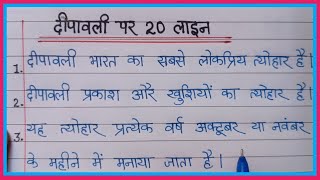 दीपावली पर 20 लाइन
1. दीपावली भारत का सबसे लोकप्रिय त्योहार है।
2. दीपावली प्रकाश और खुशियों का त्योहार है।
3. यह त्योहार प्रत्येक वर्ष अक्टूबर या नवंबर
के महीने में मनाया जाता है।